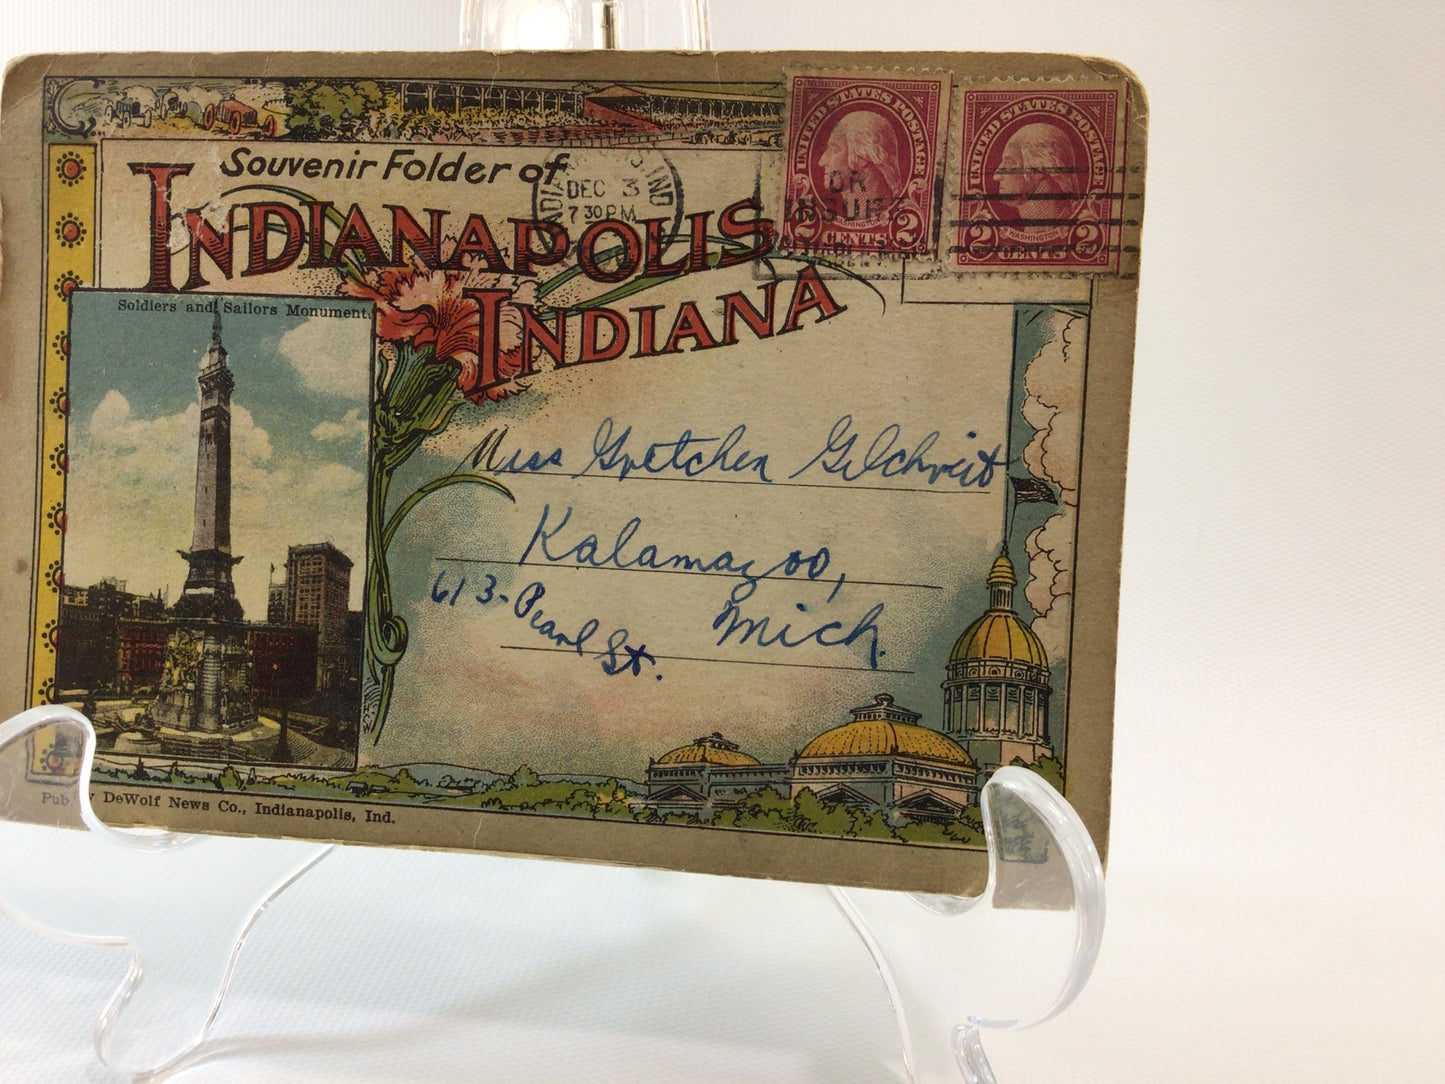 Souvenir Folder of
INDIANAPOLIS
INDIANA
DEC 3
7 30 PM
IND
UNITED STATES POSTAGE
WASHINGTON
2 CENTS 2
UNITED STATES POSTAGE
WASHINGTON
2 CENTS 2
OR
INSURE
Soldiers and Sailors Monument.
Miss Gretchen Gilchrist
Kalamazoo,
613 - Pearl St.
Mich.
Pub. by DeWolf News Co., Indianapolis, Ind.